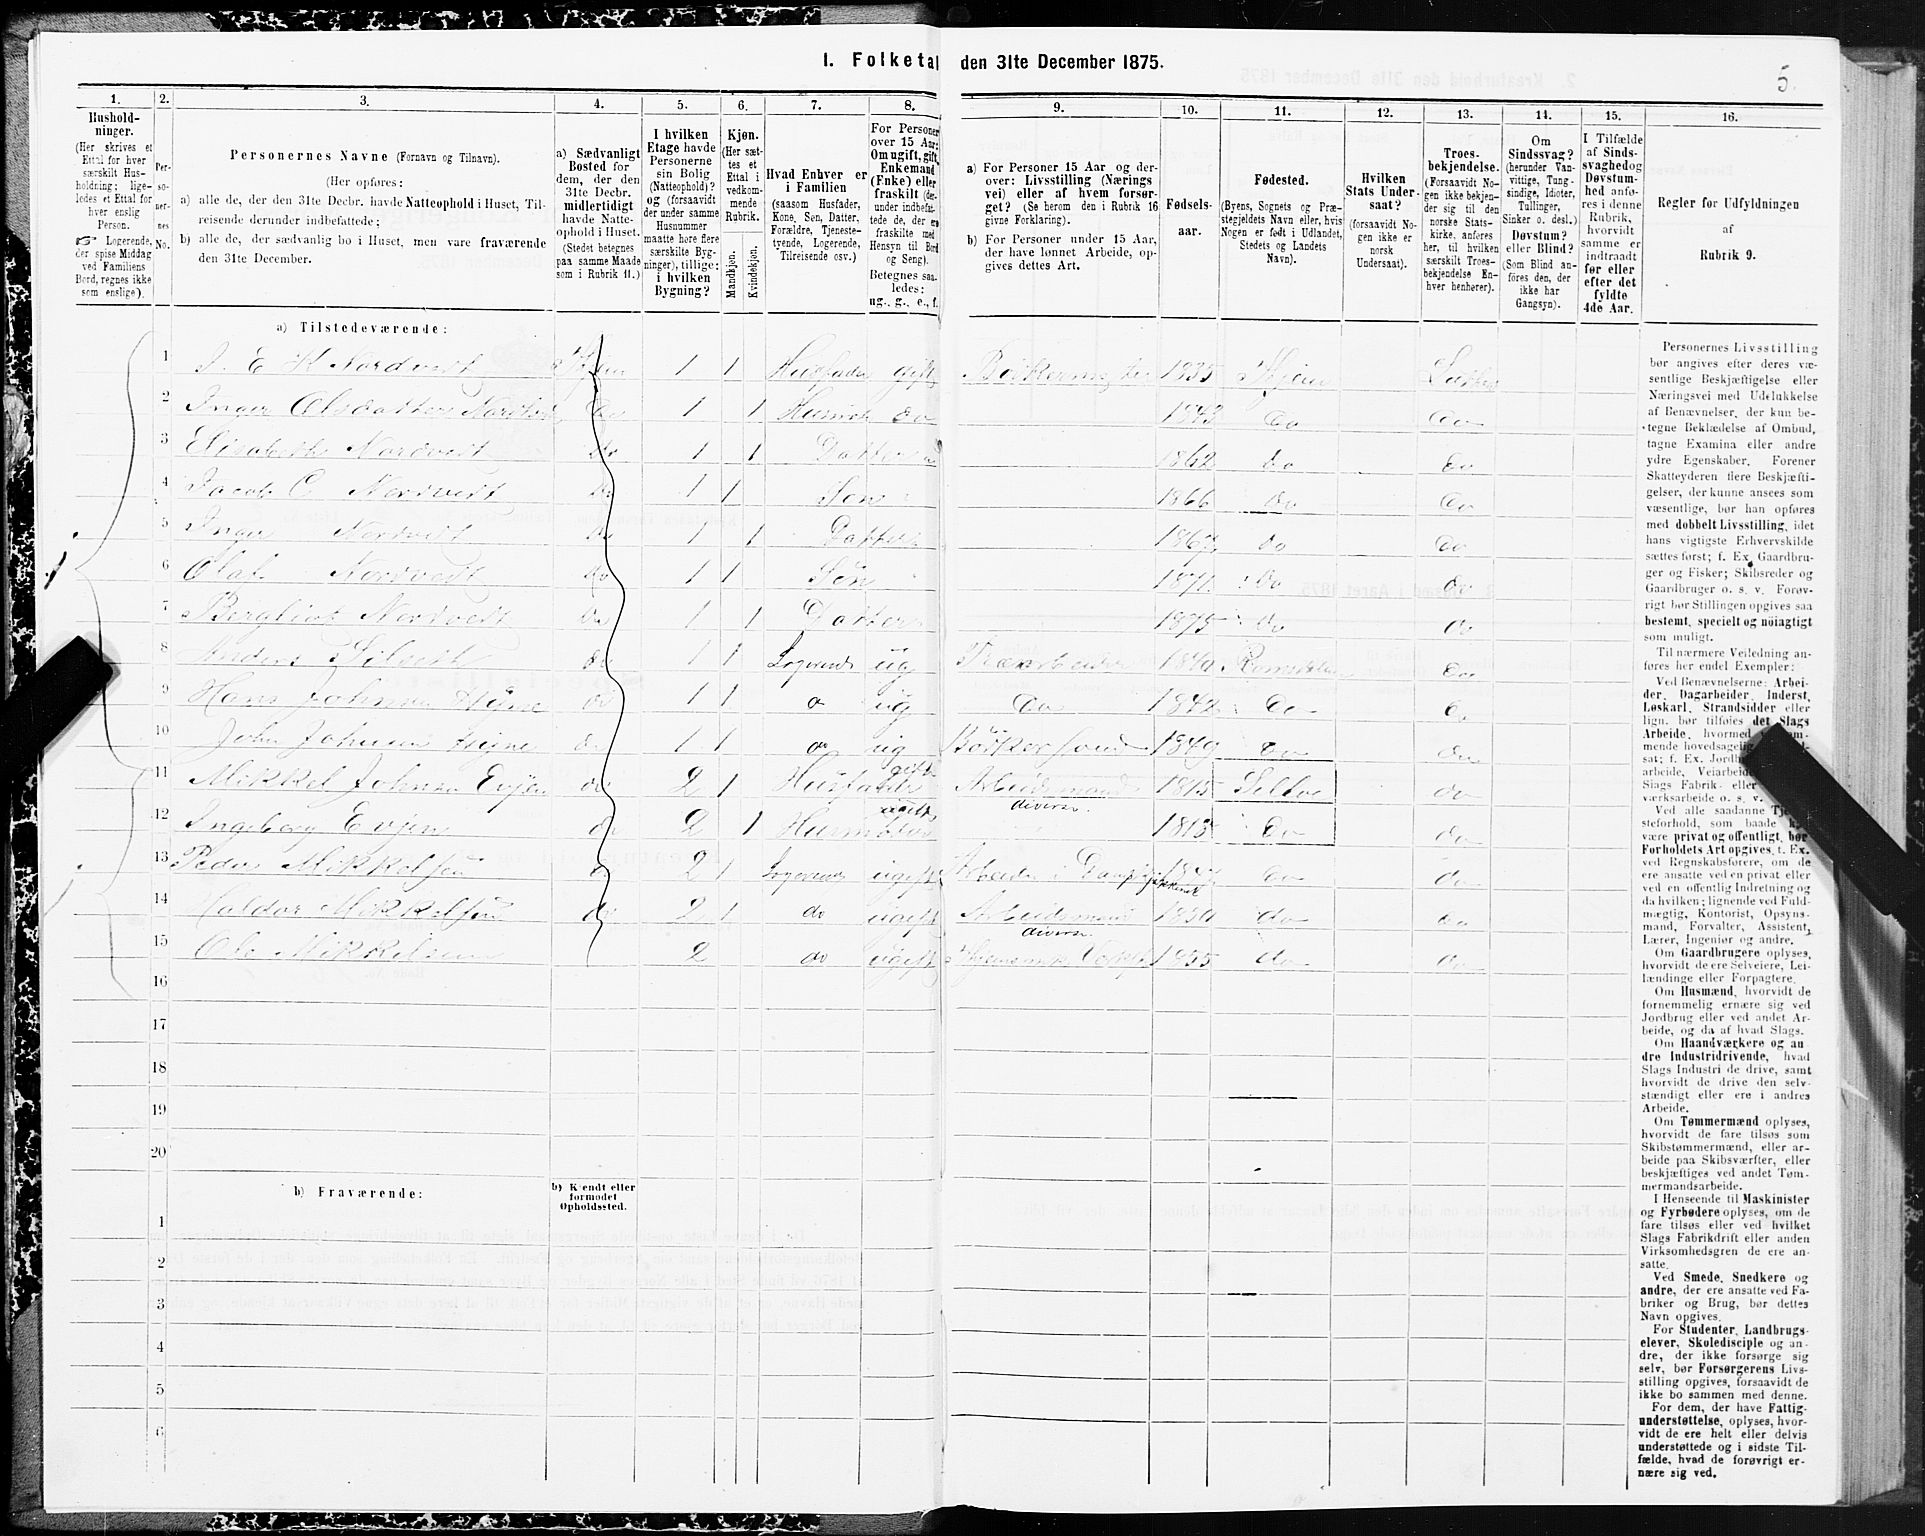 1. Folketal den 31te December 1875.
5.
1. 2. 3. 4. 5. 6. 7. 8. 9. 10. 11. 12. 13. 14. 15. 16.
Hushold-
ninger.
(Her skrives et
Ettal for hver
særskilt Hus-
holdning; lige-
ledes et Ettal for
hver enslig
Person.
☞ Logerende,
der spise Middag
ved Familiens
Bord, regnes ikke
som enslige).
Per-
so-
ner-
nes
No.
Personernes Navne (Fornavn og Tilnavn).
(Her opføres:
a) alle de, der den 31te Decbr. havde Natteophold i Huset, Til-
reisende derunder indbefattede;
b) alle de, der sædvanlig bo i Huset, men vare fraværende
den 31te December.
a) Sædvanligt
Bosted for
dem, der den
31te Decbr.
midlertidigt
havde Natte-
ophold i Huset.
(Stedet betegnes
paa samme Maade
som i Rubrik 11.)
I hvilken
Etage havde
Personerne
sin Bolig
(Natteophold)?
og (forsaavidt
der under samme
Husnummer
maatte høre flere
særskilte Byg-
ninger), tillige:
i hvilken
Bygning?
Kjøn.
(Her sæt-
tes et
Ettal i
vedkom-
mende
Rubrik.
Mandkjøn.
Kvindekjøn.
Hvad Enhver er
i Familien
(saasom Husfader,
Kone, Søn, Datter,
Forældre, Tjeneste-
tyende, Logerende,
Tilreisende osv.)
For Personer
over 15 Aar:
Om ugift, gift,
Enkemand
(Enke) eller
fraskilt (der-
under indbefat-
tede de, der ere
fraskilte med
Hensyn til Bord
og Seng).
Betegnes saa-
ledes:
ug., g., e., f.
a) For Personer 15 Aar og der-
over: Livsstilling (Nærings
vei) eller af hvem forsør-
get? (Se herom den i Rubrik 16
givne Forklaring).
b) For Personer under 15 Aar,
der have lønnet Arbeide, op-
gives dettes Art.
Fødsels-
aar.
Fødested.
(Byens, Sognets og Præ-
stegjeldets Navn eller, hvis
Nogen er født i Udlandet,
Stedets og Landets
Navn).
Hvilken
Stats Under-
saat?
(forsaavidt No-
gen ikke er
norsk
Undersaat).
Troes-
bekjendelse.
(Forsaavidt No-
gen ikke bekjen-
der sig til den
norske Stats-
kirke, anføres
her, til hvilken
særskilt Troes-
bekjendelse En-
hver henhører).
Om
Sindssvag?
(herunder Van-
vittige, Tung-
sindige, Idioter,
Tullinger,
Sinker o. desl.)
Døvstum?
eller Blind?
(Som Blind an-
føres den, der
ikke har
Gangsyn).
I Tilfælde
af Sinds-
svaghed og
Døvstum-
hed anfø-
res i denne
Rubrik,
hvorvidt
samme er
indtraadt
før eller
efter det
fyldte
4de Aar.
Regler for Udfyldningen
af
Rubrik 9.
a) Tilstedeværende:
1 Nordvedt 1 1 Husfader gift 1835 Luther
2 Inger Olsdatter 1 1 do 1843 do do
3 Elisabeth Nordvedt do 1 1 Datter 1862 do do
4 Jacob O Nordvedt do 1 1 Søn 1866 do do
5 Inger Nordvedt do 1 1 Datter do do
6 Olaf Nordvedt do 1 1 Søn 1871 do do
7 Bergliot Nordvedt do 1 1 Datter 1875 do do
8 Anders do 1 1 Logerende ug 1840 do
9 Hans Johnsen do 1 1 ug do 1842 do do
10 John Johnsen do 1 1 do ug 1849 do do
11 Mikkel Johnsen Evjen do 2 1 Husfader gift Arbeidsmand diverse 1815 Selbo do
12 Ingeborg Evjen do 2 1 1815 do do
13 Peder Mikkelsen 2 1 Logerende ugift Arbeider i do do
14 Haldor Mikkelsen do 2 1 do ugift Arbeidsmand diverse 1850 do do
15 Ole Mikkelsen 2 do ugift 1855 do do
16
17
18
19
20
b) Fraværende:
b) Kjendt eller
formodet
Opholdssted.
1
2
3
4
5
6
Personernes Livsstilling
bør angives efter deres væ-
sentlige Beskjæftigelse eller
Næringsvei med Udelukkelse
af Benævnelser, der kun be-
tegne Beklædelse af Ombud,
tagne Examina eller andre
ydre Egenskaber. Forener
Skatteyderen flere Beskjæfti-
gelser, der kunne ansees som
væsentlige, bør han opføres
med dobbelt Livsstilling, idet
hans vigtigste Erhvervskilde
sættes først; f. Ex. Gaardbru-
ger og Fisker; Skibsreder og
Gaardbruger o. s. v. Forøv-
rigt bør Stillingen opgives saa
bestemt, specielt og nøiagtigt
som muligt.
Til nærmere Veiledning an-
føres her endel Exempler:
Ved Benævnelserne: Arbei-
der, Dagarbeider, Inderst,
Løskarl, Strandsidder eller
lign. bør tilføies det Slags
Arbeide, hvormed
mende hovedsagelig
sat; f. Ex.
arbeide, Veiarbeide
Slags Fabrik- eller
værksarbeide o. s. v.
Ved alle saadanne
steforhold, som baade
være privat og offentligt, bør
Forholdets Art opgives, t. Ex.
ved Regnskabsførere, om de
ere ansatte ved en privat eller
ved en offentlig Indretning og
da hvilken; lignende ved Fuld-
mægtig, Kontorist, Opsyns-
mand, Forvalter, Assistent,
Lærer, Ingeniør og andre.
Om Gaardbrugere oplyses,
hvorvidt de ere Selveiere, Lei-
lændinge eller Forpagtere.
Om Husmænd, hvorvidt de
fornemmelig ernære sig ved
Jordbrug eller ved andet Ar-
beide, og da af hvad Slags.
Om Haandværkere og an
dre Industridrivende, hvad
Slags Industri de drive, samt
hvorvidt de drive den selv-
stændigt eller ere i andres
Arbeide.
Om Tømmermænd oplyses,
hvorvidt de fare tilsøs som
Skibstømmermænd, eller ar-
beide paa Skibsværfter, eller
beskjæftiges ved andet Tøm-
mermandsarbeide.
I Henseende til Maskinister
og Fyrbødere oplyses, om de
fare tilsøs eller ved hvilket
Slags Fabrikdrift eller anden
Virksomhedsgren de ere an-
satte.
Ved Smede, Snedkere og
andre, der ere ansatte ved Fa-
briker og Brug, bør dettes
Navn opgives.
For Studenter, Landbrugs-
elever, Skoledisciple og an-
dre, der ikke forsørge sig
selv, bør Forsørgerens Livs-
stilling opgives, forsaavidt de
ikke bo sammen med denne.
For dem, der have Fattig-
understøttelse, oplyses, hvor-
vidt de ere helt eller delvis
understøttede og i sidste Til-
fælde, hvad de forøvrigt er-
nære sig ved.